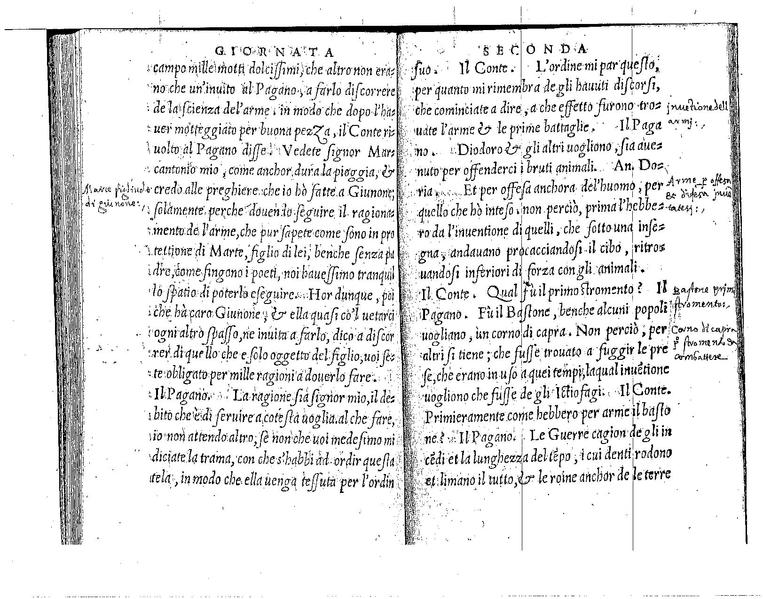 GIORNATA
campo mille motti dolcissimi, che altro non era-
no che un'inuito al Pagano, a farlo discorrere
de la scienza del'arme. in modo che dopo l'ha-
uer motteggiato per buona pezza, il Conte ri-
uolto al Pagano disse. Vedete signor Mar-
cantonio mio, come anchor dura la pioggia, &
credo alle preghiere che io hò fatte a Giunone,
solamente perche douendo seguire il ragiona-
mento de l'arme, che pur sapete come sono in pro
tettione di Marte, figlio di lei, benche senza pa
dre, come fingono i poeti, noi hauessimo tranquil
lo spatio di poterlo eseguire. Hor dunque, poi
che hà caro Giunone, & ella quasi cò'l uetarci
ogni altro spasso, ne inuita a farlo, dico a discor
rer di quello che e solo oggetto del figlio, uoi se-
te obligato per mille ragioni a douerlo fare.
Il Pagano. La ragione sia signor mio, il de-
bito che è di seruire a cotesta uoglia. al che fare,
io non attendo altro, se non che uoi medesimo mi
diciate la trama, con che s'habbi ad ordir questa
tela, in modo che ella uenga tessuta per l'ordin
Marte figliuolo
di giunone:,
SECONDA
suo. Il Conte. L'ordine mi par questo,
per quanto mi rimembra de gli hauuti discorsi,
che cominciate a dire, a che effetto furono tro-
uate l'arme & le prime battaglie. Il Paga
no. Diodoro & gli altri uogliono, sia aue-
nuto per offenderci i bruti animali. An. Do-
ria. Et per offesa anchora del'huomo, per
quello che hò inteso, non perciò, prima l'hebbe-
ro da l'inuentione di quelli, che sotto una inse-
gna, andauano procacciandosi il cibo, ritro-
uandosi inferiori di forza con gli animali.
Il Conte. Qual fù il primo stromento? Il
Pagano. Fù il Bastone, benche alcuni popoli
uogliano, un corno di capra. Non perciò, per
altri si tiene, che fusse trouato a fuggir le pre
se, che erano in uso a quei tempi, la qual inuētione
uogliono che fusse de gli Ictiofagi. Il Conte.
Primieramente come hebbero per arme il basto
ne? Il Pagano. Le Guerre cagion de gli in
cēdi et la lunghezza del tēpo, i cui denti rodono
et limano il tutto, & le roine anchor de le terre
armi:,
Arme p offesa
Bastone prim
stromento:,
Corno di capra
p stromento da
combattere